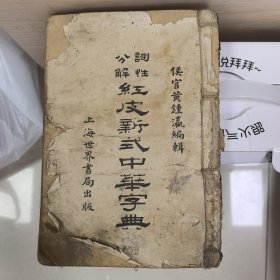 侯官黄鍾瀛編輯
詞性
分解
紅皮新式中華字典
上海世界書局出版
拜拜~
眼火气